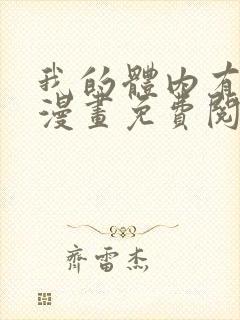 我的體內有
漫畫免費閱
齊雷杰